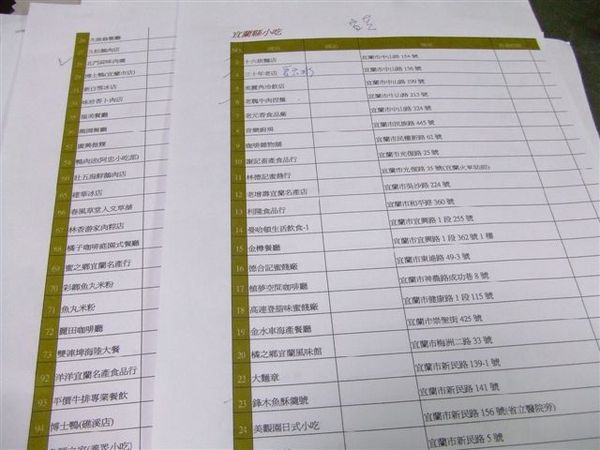 宜蘭縣小吃
NO.
十六崁麵店 宜蘭市中山路 154 號
三十年老店 宜蘭市中山路 156 號
美麗角冷飲店 宜蘭市中山路 199 號
老甕牛肉捏麵 宜蘭市中山路 213 號
老元香食品廠 宜蘭市中山路 324 號
音樂廚房 宜蘭市民族路 445 號
咖啡雜物舖 宜蘭市民權新路 62 號
10 謝記畜產食品行 宜蘭市光復路 25 號
11 林德記蜜餞行 宜蘭市光復路 25 號(宜蘭火車站前)
12 老增壽宜蘭名產店 宜蘭市吳沙路 224 號
13 利隆食品行 宜蘭市和平路 360 號
14 曼哈頓生活飲食-1 宜蘭市宜興路 1 段 255 號
15 金樽餐廳 宜蘭市宜興路 1 段 362 號 1 樓
16 德合記蜜餞廠 宜蘭市東港路 49-3 號
17 植夢空間咖啡館 宜蘭市神農路成功巷 8 號
18 高速登脂味蜜餞廠 宜蘭市健康路 1 段 115 號
19 金水車海產餐廳 宜蘭市崇聖街 425 號
20 橘之鄉宜蘭風味館 宜蘭市梅洲二路 33 號
22 大麵章 宜蘭市新民路 139-1 號
23 鋒木魚酥羹號 宜蘭市新民路 141 號
24 美觀園日式小吃 宜蘭市新民路 156 號(省立醫院旁)
宜蘭市新民路 5 號
北門蒜味肉羹
博士鴨(宜蘭市店)
新白雪冰店
鴨肉送(阿忠小吃部)
吐五海鮮鵝肉店
建華冰店
66 春風草堂人文草舖
67 林香游家肉粽店
68 橘子咖啡庭園式餐廳
69 蜜之鄉宜蘭名產行
70 彩鄉魚丸米粉
71 魚丸米粉
72 麗田咖啡廳
73 雙連埤海陸大餐
92 洋洋宜蘭名產食品行
93 平價牛排專業餐飲
94 博士鴨(礁溪店)